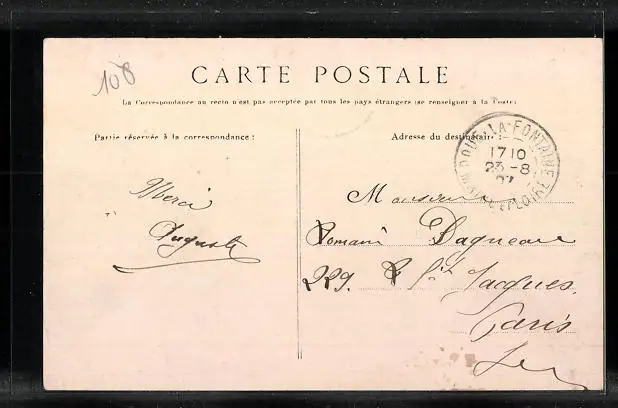 108
CARTE POSTALE
La Correspondance au recto n'est pas acceptée par tous les pays étrangers (se renseigner à la Poste)
Partie réservée à la correspondance :
Adresse du destinataire :
DOUÉ-LA-FONTAINE
17 10
23 - 8
07
MAINE ET LOIRE
Merci
Auguste
Monsieur
Romain Daqueau
229. R St Jacques.
Paris